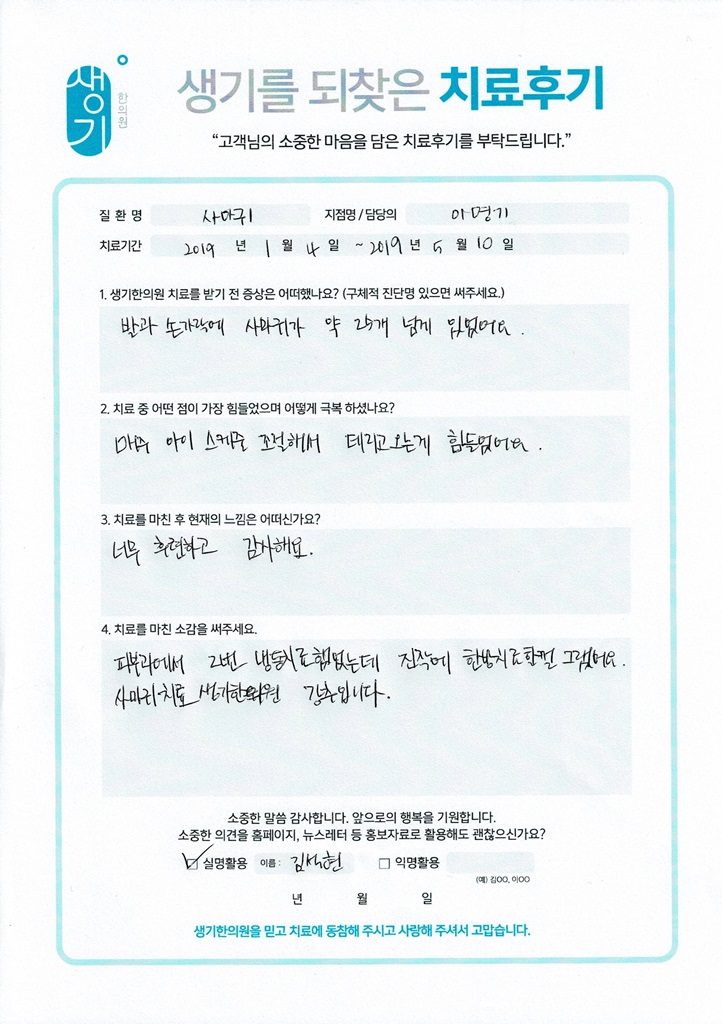 생기
한의원
생기를 되찾은 치료후기
“고객님의 소중한 마음을 담은 치료후기를 부탁드립니다.”
질 환 명 사마귀 지점명 / 담당의 이명기
치료기간 2019 년 1 월 4 일 ~ 2019 년 5 월 10 일
1. 생기한의원 치료를 받기 전 증상은 어떠했나요? (구체적 진단명 있으면 써주세요.)
발과 손가락에 사마귀가 약 25개 넘게 있었어요.
2. 치료 중 어떤 점이 가장 힘들었으며 어떻게 극복 하셨나요?
매주 아이 스케쥴 조절해서 데리고오는게 힘들었어요.
3. 치료를 마친 후 현재의 느낌은 어떠신가요?
너무 후련하고 감사해요.
4. 치료를 마친 소감을 써주세요.
피부과에서 2번 냉동치료했었는데 진작에 한방치료할껄 그랬어요.
사마귀치료 생기한의원 강추입니다.
소중한 말씀 감사합니다. 앞으로의 행복을 기원합니다.
소중한 의견을 홈페이지, 뉴스레터 등 홍보자료로 활용해도 괜찮으신가요?
실명활용 이름 : 김석현 익명활용
(예) 김OO, 이OO
년 월 일
생기한의원을 믿고 치료에 동참해 주시고 사랑해 주셔서 고맙습니다.